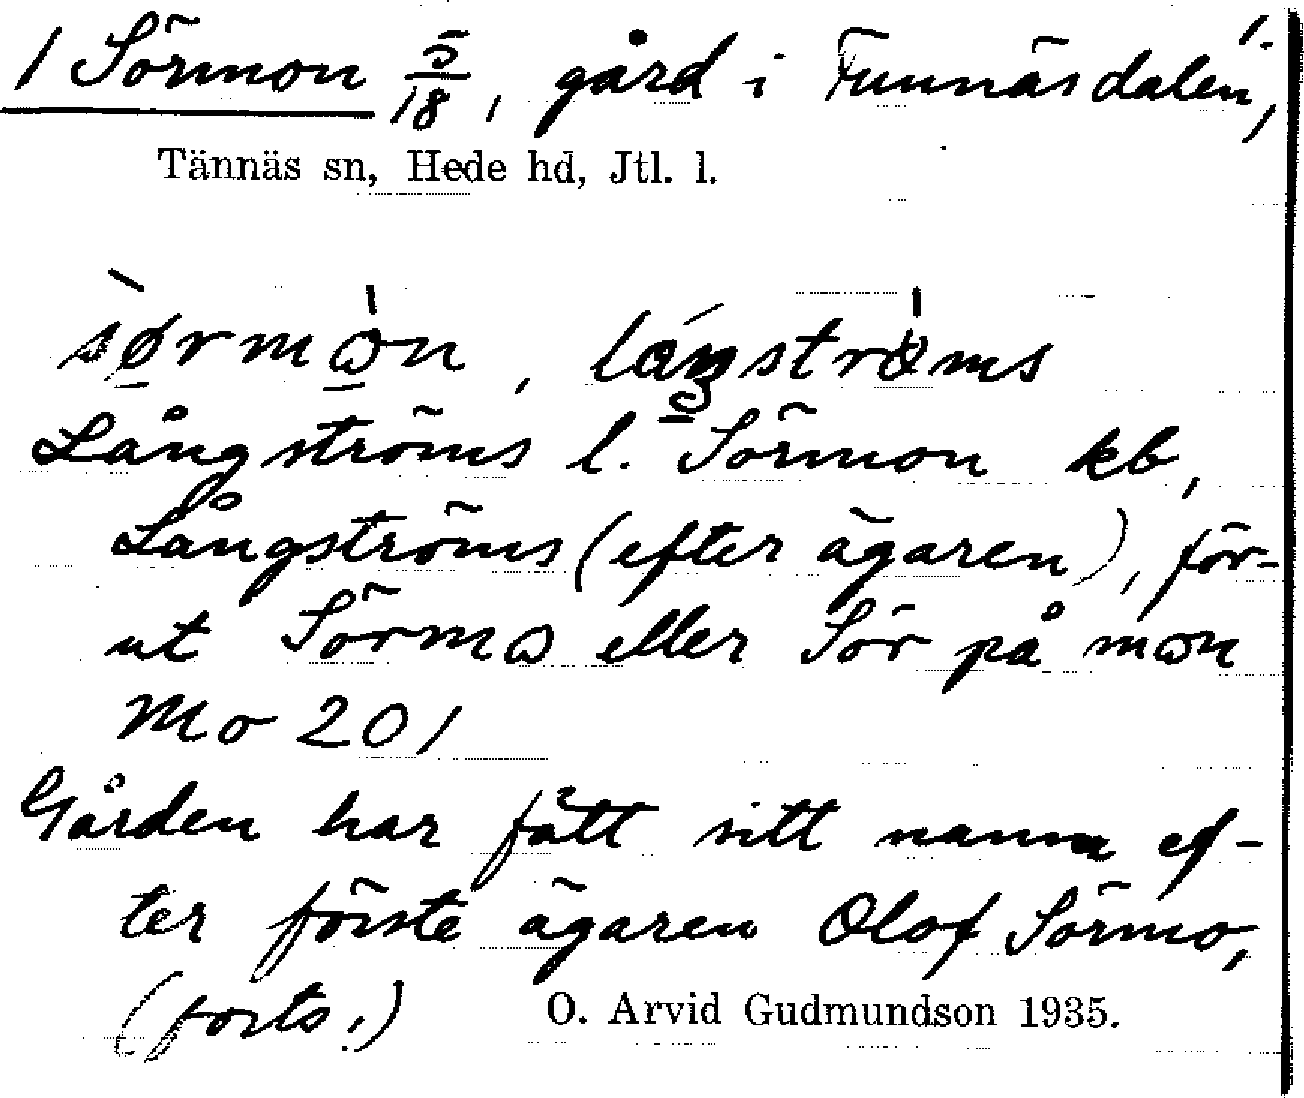 1 Sörmon 5/18, gård i Funnäsdalen,
Tännäs sn, Hede hd, Jtl. l.
Långströms l. Sörmon kb,
Långströms (efter ägaren), för-
ut Sörmo eller Sör på mon
Mo 201
Gården har fått sitt namn ef-
ter förste ägaren Olof Sörmo,
(forts.) O. Arvid Gudmundson 1935.